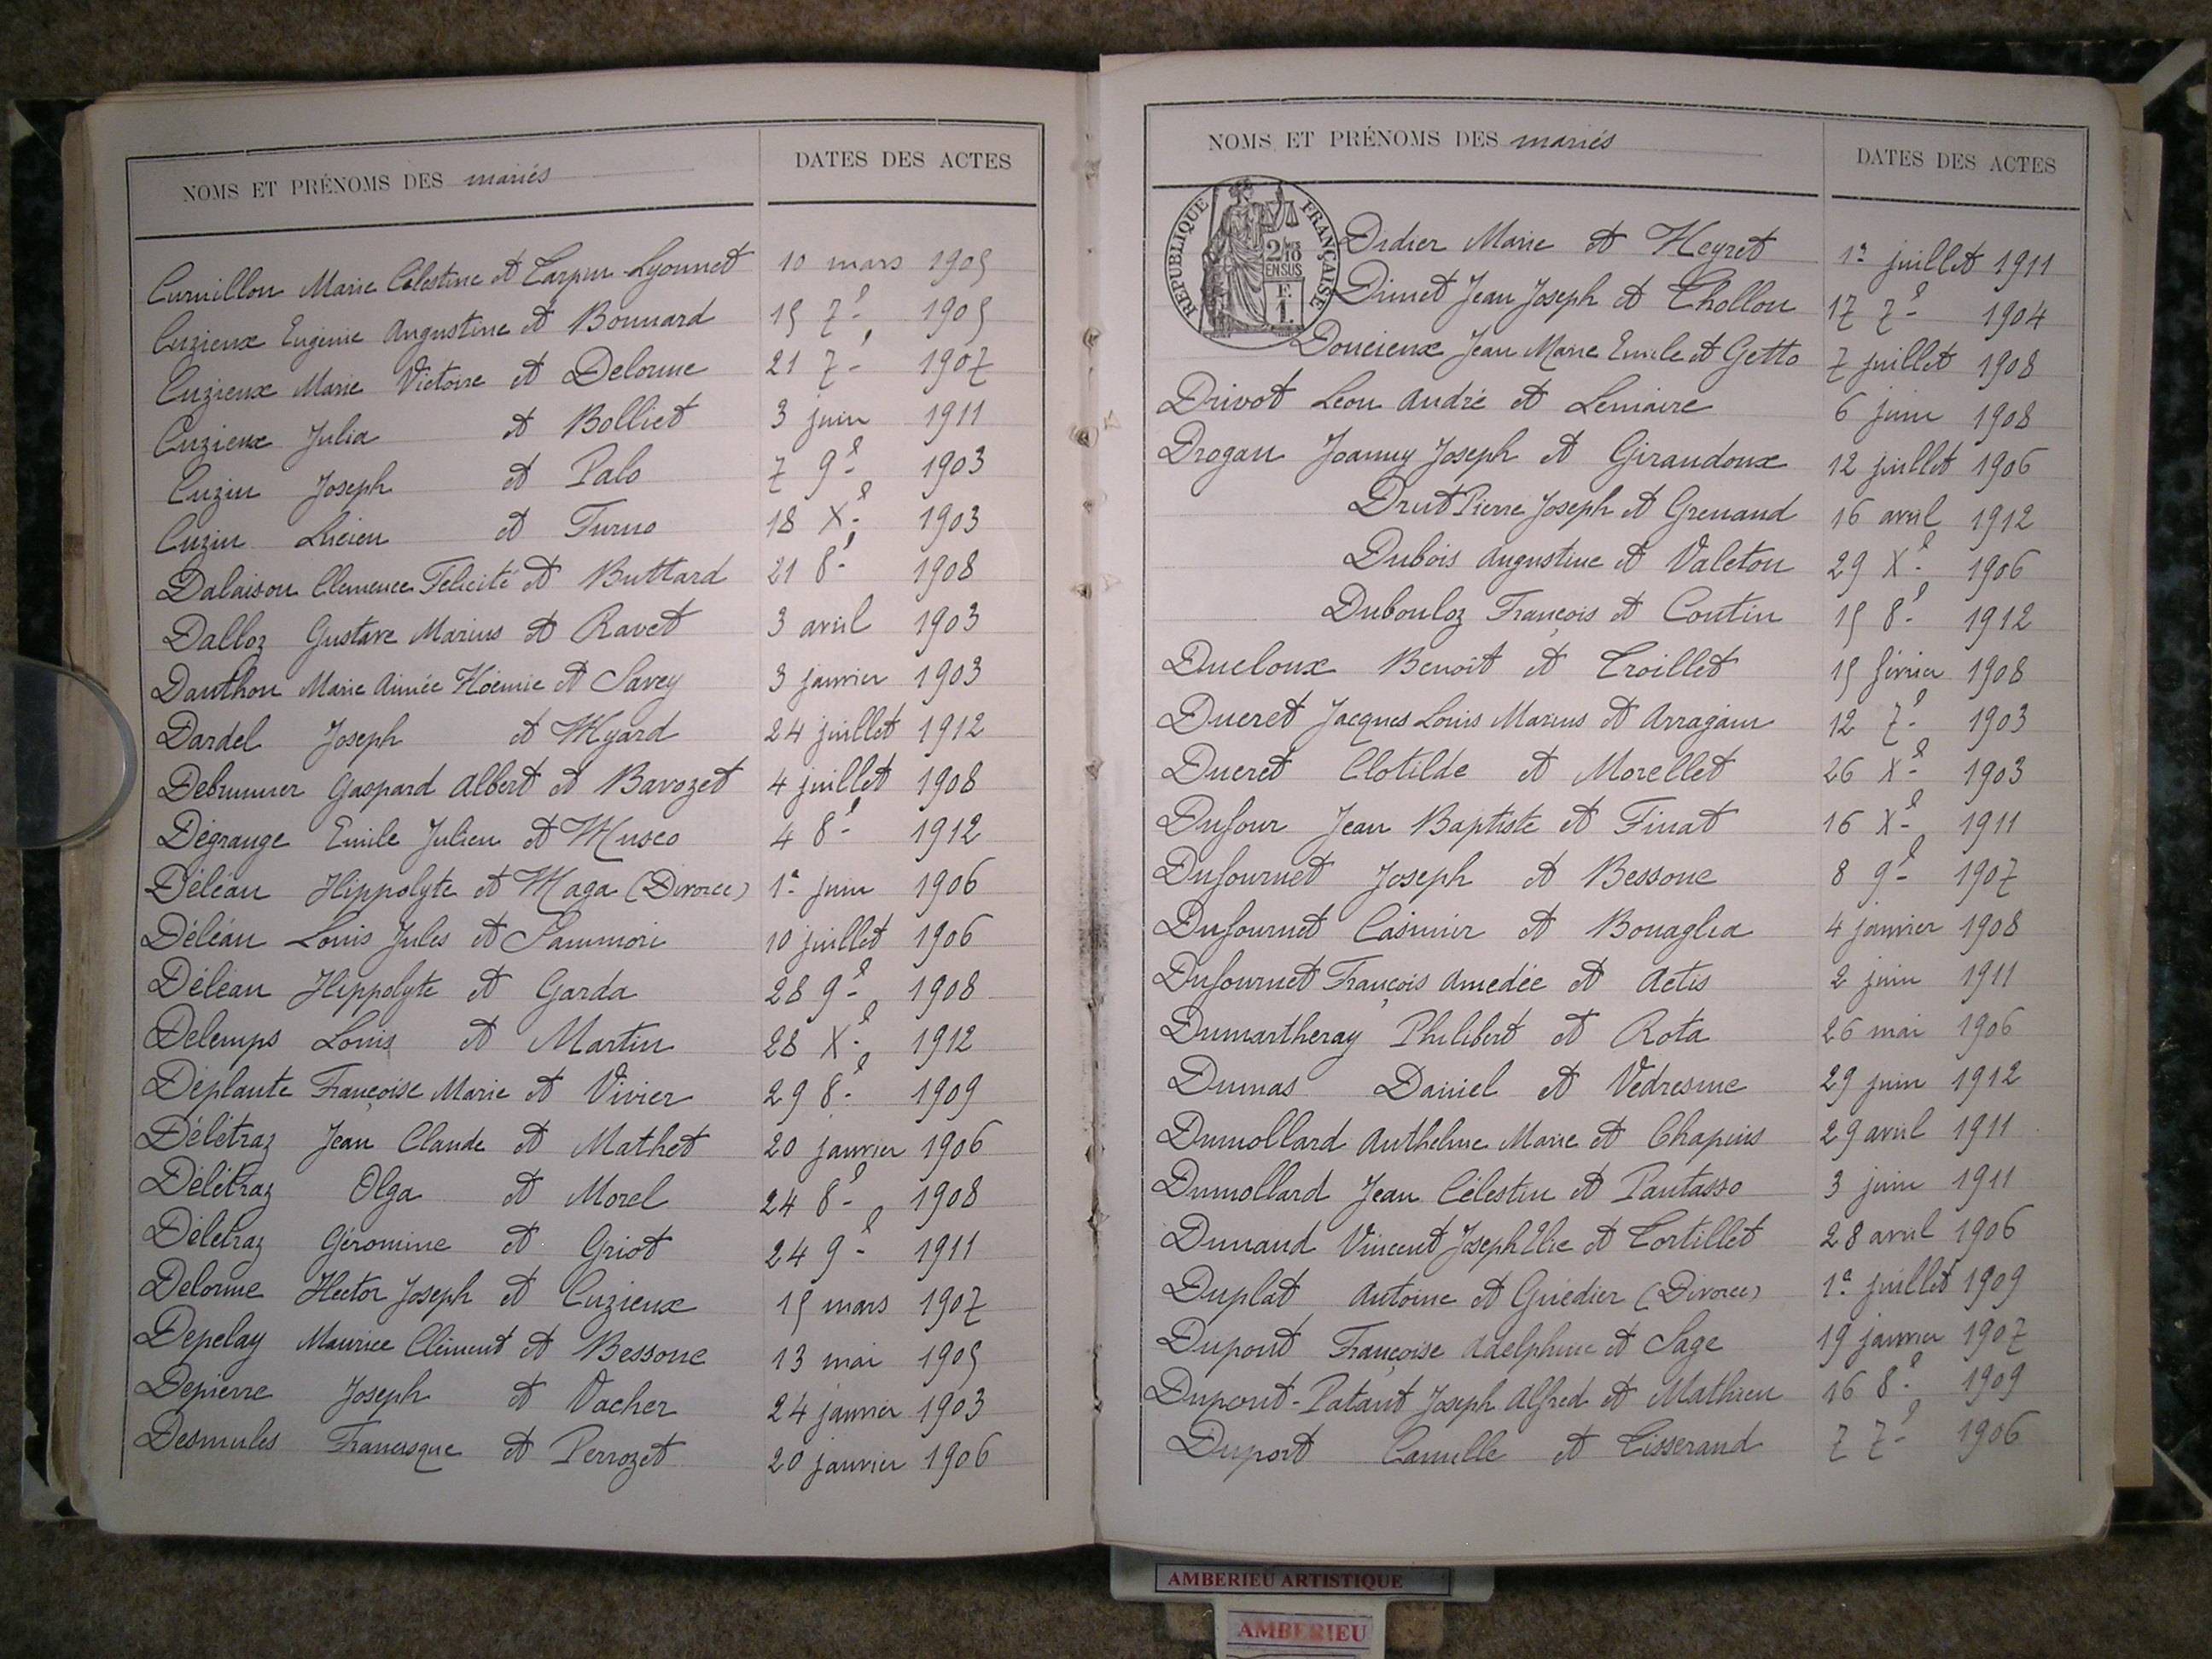 NOMS ET PRÉNOMS DES mariés
DATES DES ACTES
Curvillon Marie Célestine et Carpin-Lyonnet 10 mars 1905
Cuzieux Eugénie Augustine et Bonnard 15 7e 1905
Cuzieux Marie Victoire et Delorme 21 7e 1907
Cuzieux Julia et Bolliet 3 juin 1911
Cuzin Joseph et Palo 7 9e 1903
Cuzin Lucien et Furno 18 Xe 1903
Dalaison Clemence Felicité et Buttard 21 8e 1908
Dalloz Gustave Marius et Ravet 3 avril 1903
Danthon Marie Aimée Noémie et Savey 3 janvier 1903
Dardel Joseph et Myard 24 juillet 1912
Debrunner Gaspard Albert et Bavozet 4 juillet 1908
Dégrange Emile Julien et Musco 4 8e 1912
Déléan Hippolyte et Maga (Divorce) 1er juin 1906
Déléan Louis Jules et Sammori 10 juillet 1906
Déléan Hippolyte et Garda 28 9e 1908
Delemps Louis et Martin 28 Xe 1912
Déplante Françoise Marie et Vivier 29 8e 1909
Délétraz Jean Claude et Mathet 20 janvier 1906
Délétraz Olga et Morel 24 8e 1908
Délétraz Géromine et Griot 24 9e 1911
Delorme Hector Joseph et Cuzieux 15 mars 1907
Depelay Maurice Clément et Bessone 13 mai 1905
Depierre Joseph et Vacher 24 janvier 1903
Desmules Francisque et Perrozet 20 janvier 1906
NOMS ET PRÉNOMS DES mariés
DATES DES ACTES
RÉPUBLIQUE FRANÇAISE
2/10
EN SUS
F.
1.
Didier Marie et Heyret 1er juillet 1911
Dimet Jean Joseph et Chollou 17 7e 1904
Doucieux Jean Marie Emile et Getto 7 juillet 1908
Drivot Léon André et Lemaire 6 juin 1908
Drogan Joanny Joseph et Giraudoux 12 juillet 1906
Drut Pierre Joseph et Grenaud 16 avril 1912
Dubois Augustine et Valeton 29 Xe 1906
Dubouloz François et Contin 15 8e 1912
Ducloux Benoît et Troillet 15 février 1908
Ducret Jacques Louis Marius et Arragain 12 7e 1903
Ducret Clotilde et Morellet 26 Xe 1903
Dufour Jean Baptiste et Finat 16 Xe 1911
Dufournet Joseph et Bessone 8 9e 1907
Dufournet Casimir et Bonaglia 4 janvier 1908
Dufournet François Amedée et Actis 2 juin 1911
Dumartheray Philibert et Rota 26 mai 1906
Dumas Daniel et Vedresme 29 juin 1912
Dumollard Anthelme Marie et Chapuis 29 avril 1911
Dumollard Jean Célestin et Pautasso 3 juin 1911
Dunand Vincent Joseph Elie et Tortillet 28 avril 1906
Duplat Antoine et Guédier (Divorce) 1er juillet 1909
Dupont Françoise Adelphine et Sage 19 janvier 1907
Dupont-Patant Joseph Alfred et Mathieu 16 8e 1909
Duport Camille et Tisserand 7 7e 1906
AMBERIEU ARTISTIQUE
AMBERIEU